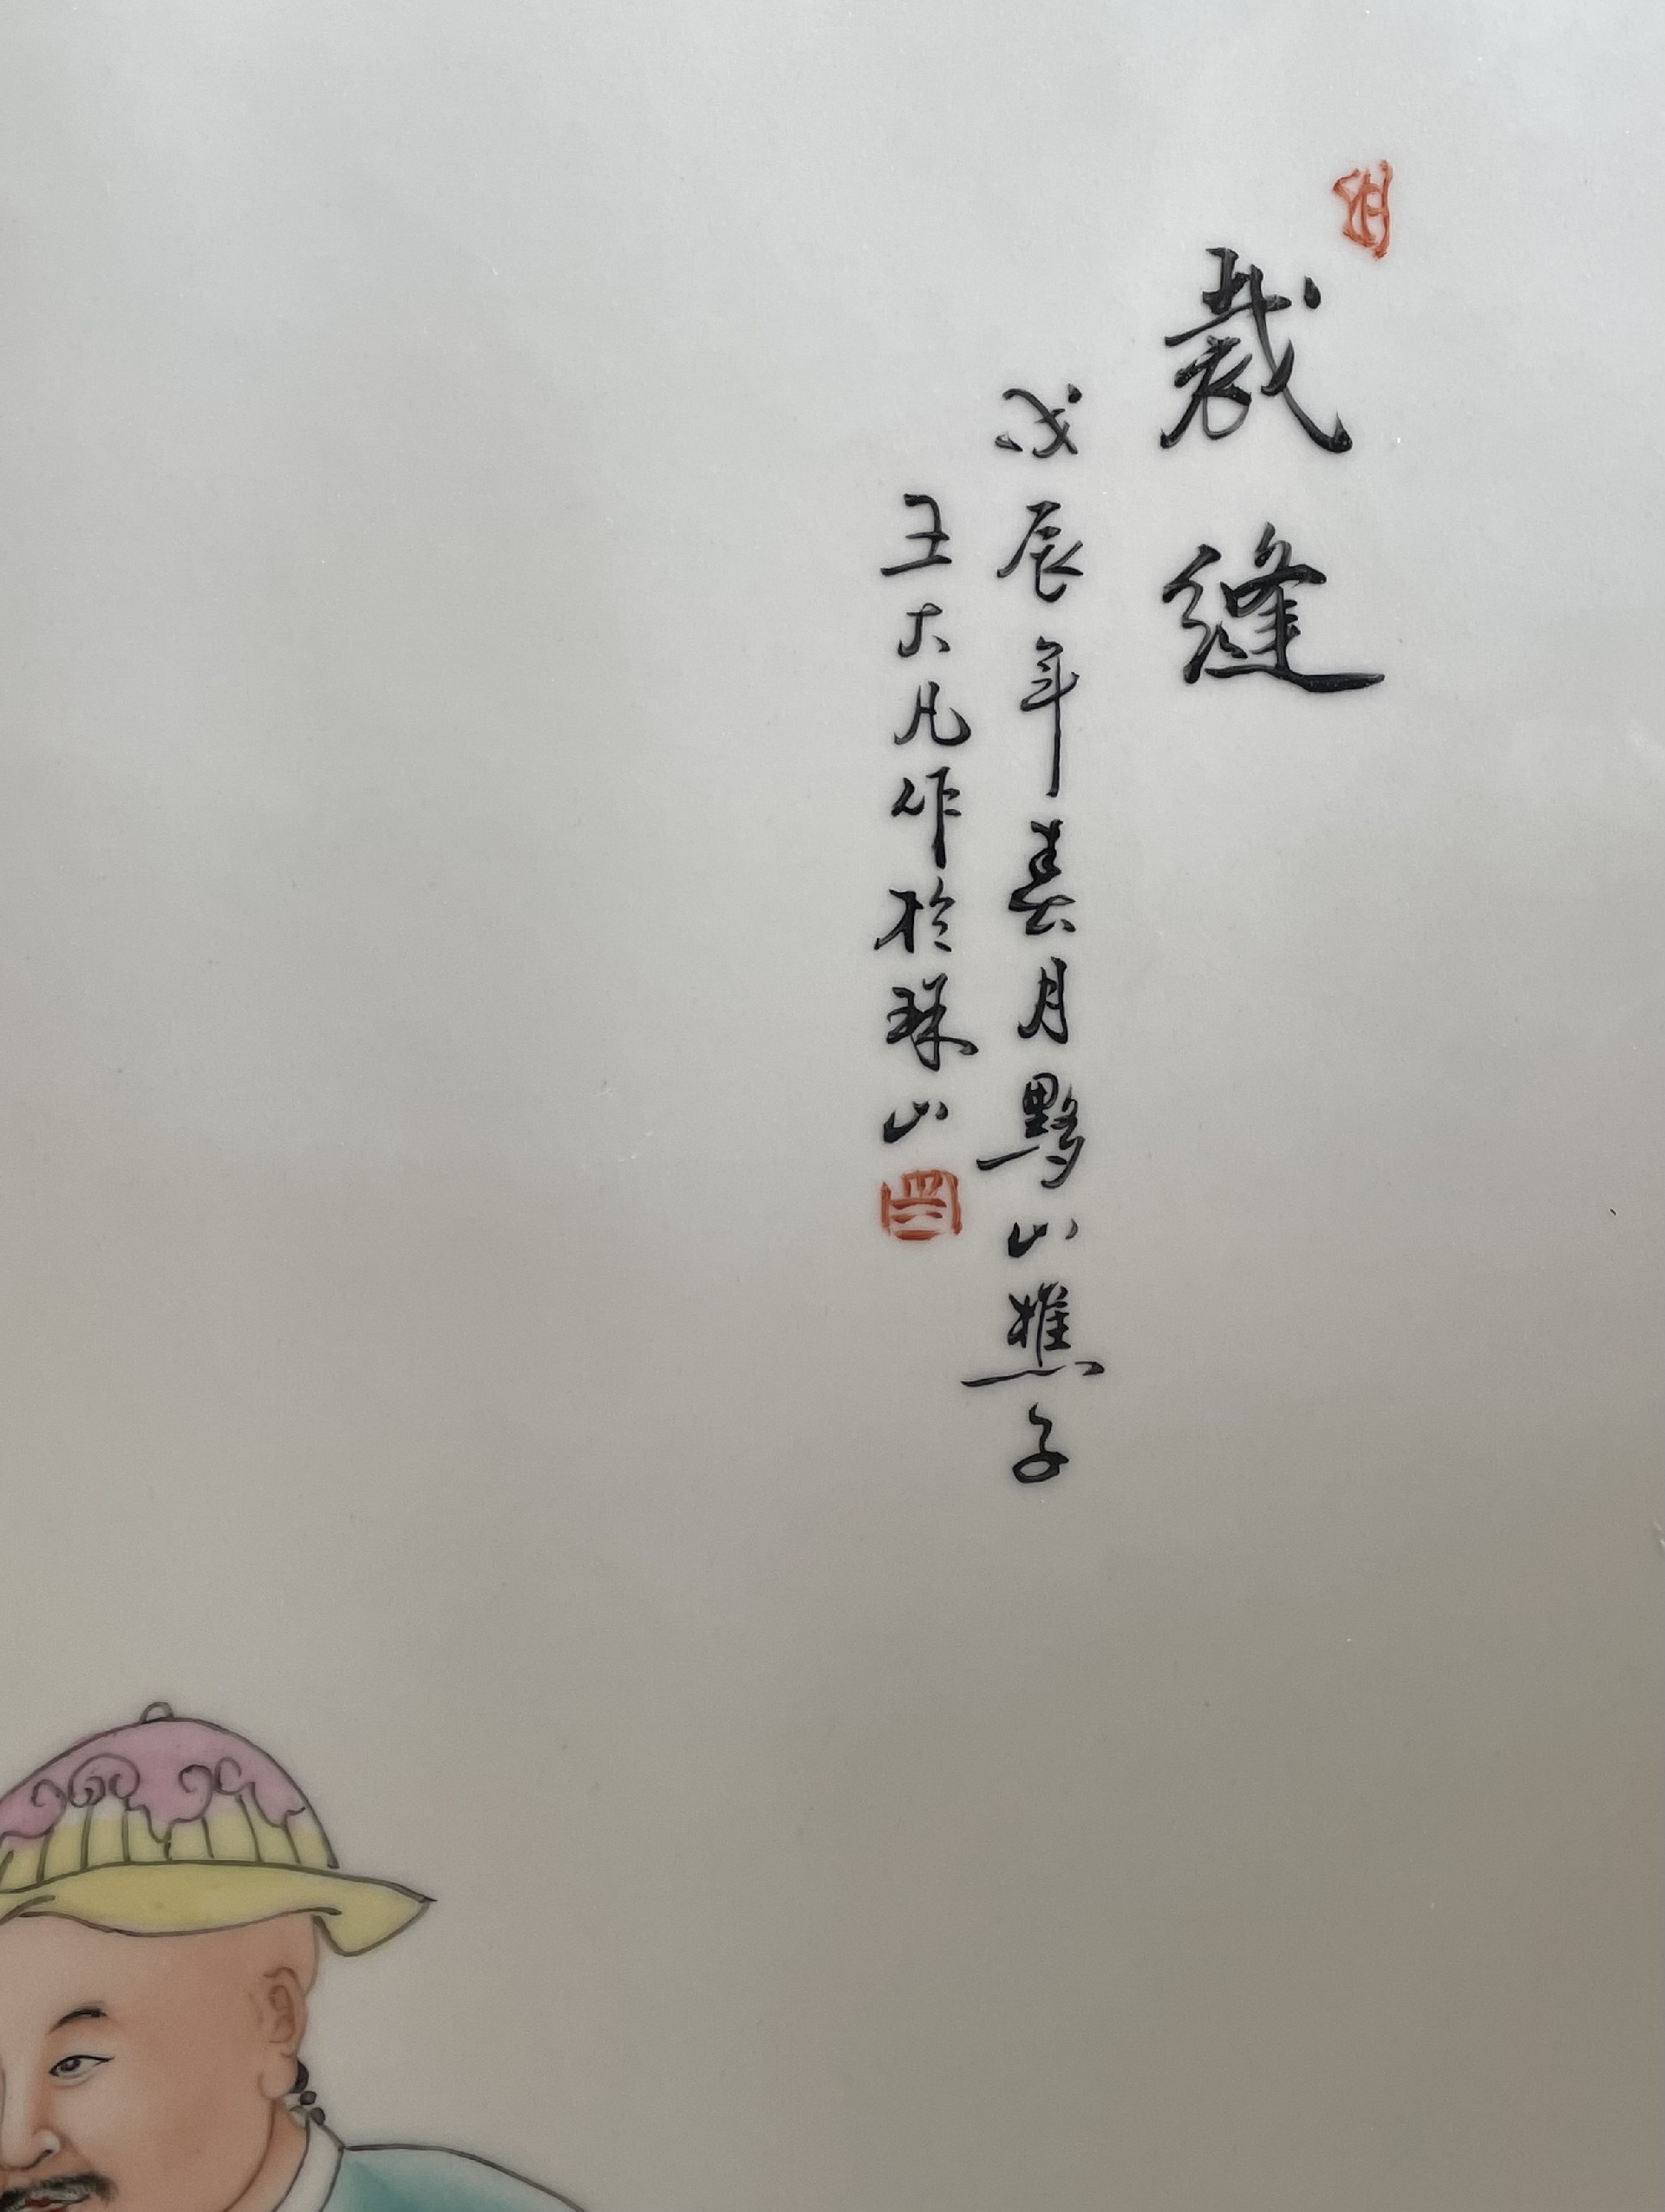 裁縫
戊辰年春月黟山樵子
王大凡作於珠山